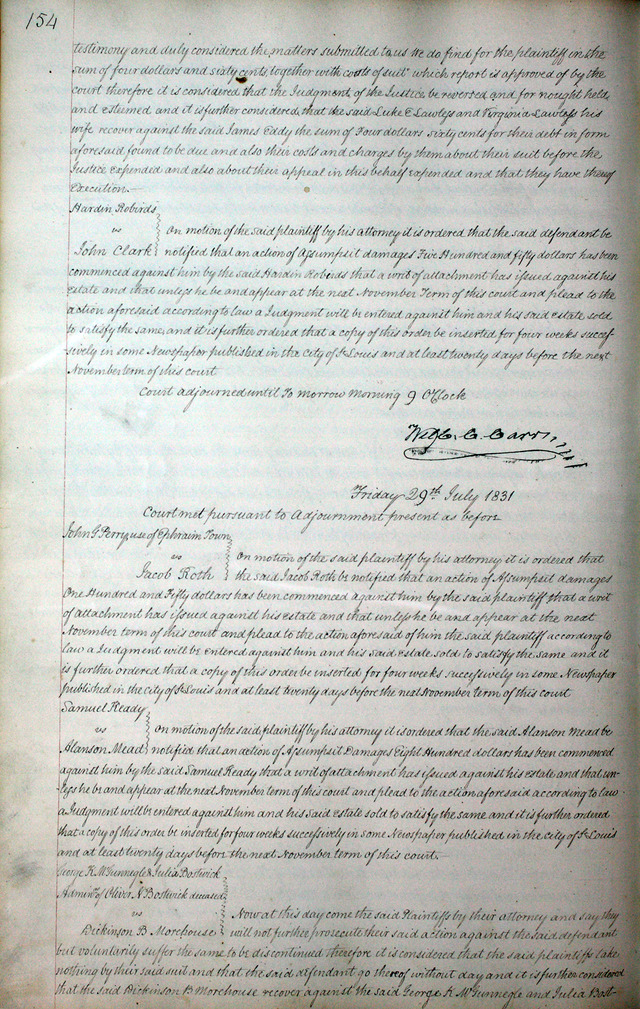 154
testimony and duly considered the matters submitted to us We do find for the plaintiff in the
sum of four dollars and sixty cents, together with costs of suit which report is approved of by the
court therefore it is considered that the Judgment of the Justice be reversed and for nought held,
and esteemed and it is further considered, that the said Luke E Lawless and Virginia Lawless his
wife recover against the said James Eddy the sum of Four dollars sixty cents for their debt in form
aforesaid found to be due and also their costs and charges by them about their suit before the
Justice Expended and also about their appeal in this behalf expended and that they have thereof
Execution.
Hardin Roberds
vs
On motion of the said plaintiff by his attorney it is ordered that the said defendant be
John Clark notified that an action of Assumpsit damages Five Hundred and fifty dollars has been
commenced against him by the said Hardin Roberds that a writ of attachment has issued against his
estate and that unless he be and appear at the next November Term of this court and plead to the
action aforesaid according to law a Judgment will be entered against him and his said estate sold
to satisfy the same, and it is further ordered that a copy of this order be inserted for four weeks succes-
sively in some Newspaper published in the City of St Louis and at least twenty days before the next
November term of this court
Court adjourned until To morrow morning 9 OClock
Wm C. Carr
Friday 29th July 1831
Court met pursuant to Adjournment present as before
John G Perry use of Ephraim Town
vs
On motion of the said plaintiff by his attorney it is ordered that
Jacob Roth the said Jacob Roth be notified that an action of Assumpsit damages
One Hundred and Fifty dollars has been commenced against him by the said plaintiff that a writ
of attachment has issued against his estate and that unless he be and appear at the next
November term of this court and plead to the action aforesaid of him the said plaintiff according to
law a Judgment will be entered against him and his said Estate sold to satisfy the same and it
is further ordered that a copy of this order be inserted for four weeks successively in some Newspaper
published in the City of St Louis and at least twenty days before the next November term of this court
Samuel Ready
vs
On motion of the said plaintiff by his attorney it is ordered that the said Alanson Mead be
Alanson Mead notified that an action of Assumpsit Damages Eight Hundred dollars has been commenced
against him by the said Samuel Ready that a writ of attachment has issued against his estate and that un-
less he be and appear at the next November term of this court and plead to the action aforesaid according to law
a Judgment will be entered against him and his said Estate sold to satisfy the same and it is further ordered
that a copy of this order be inserted for four weeks successively in some Newspaper published in the City of St Louis
and at least twenty days before the next November term of this court.
George K McGunnegle & Julia Bostwick
Admins of Oliver N Bostwick deceased
vs
Now at this day come the said Plaintiffs by their attorney and say they
Dickinson B. Morehouse will not further prosecute their said action against the said defendant
but voluntarily suffer the same to be discontinued therefore it is considered that the said plaintiffs take
nothing by their said suit and that the said defendant go thereof without day and it is further considered
that the said Dickinson B Morehouse recover against the said George K McGunnegle and Julia Bost-